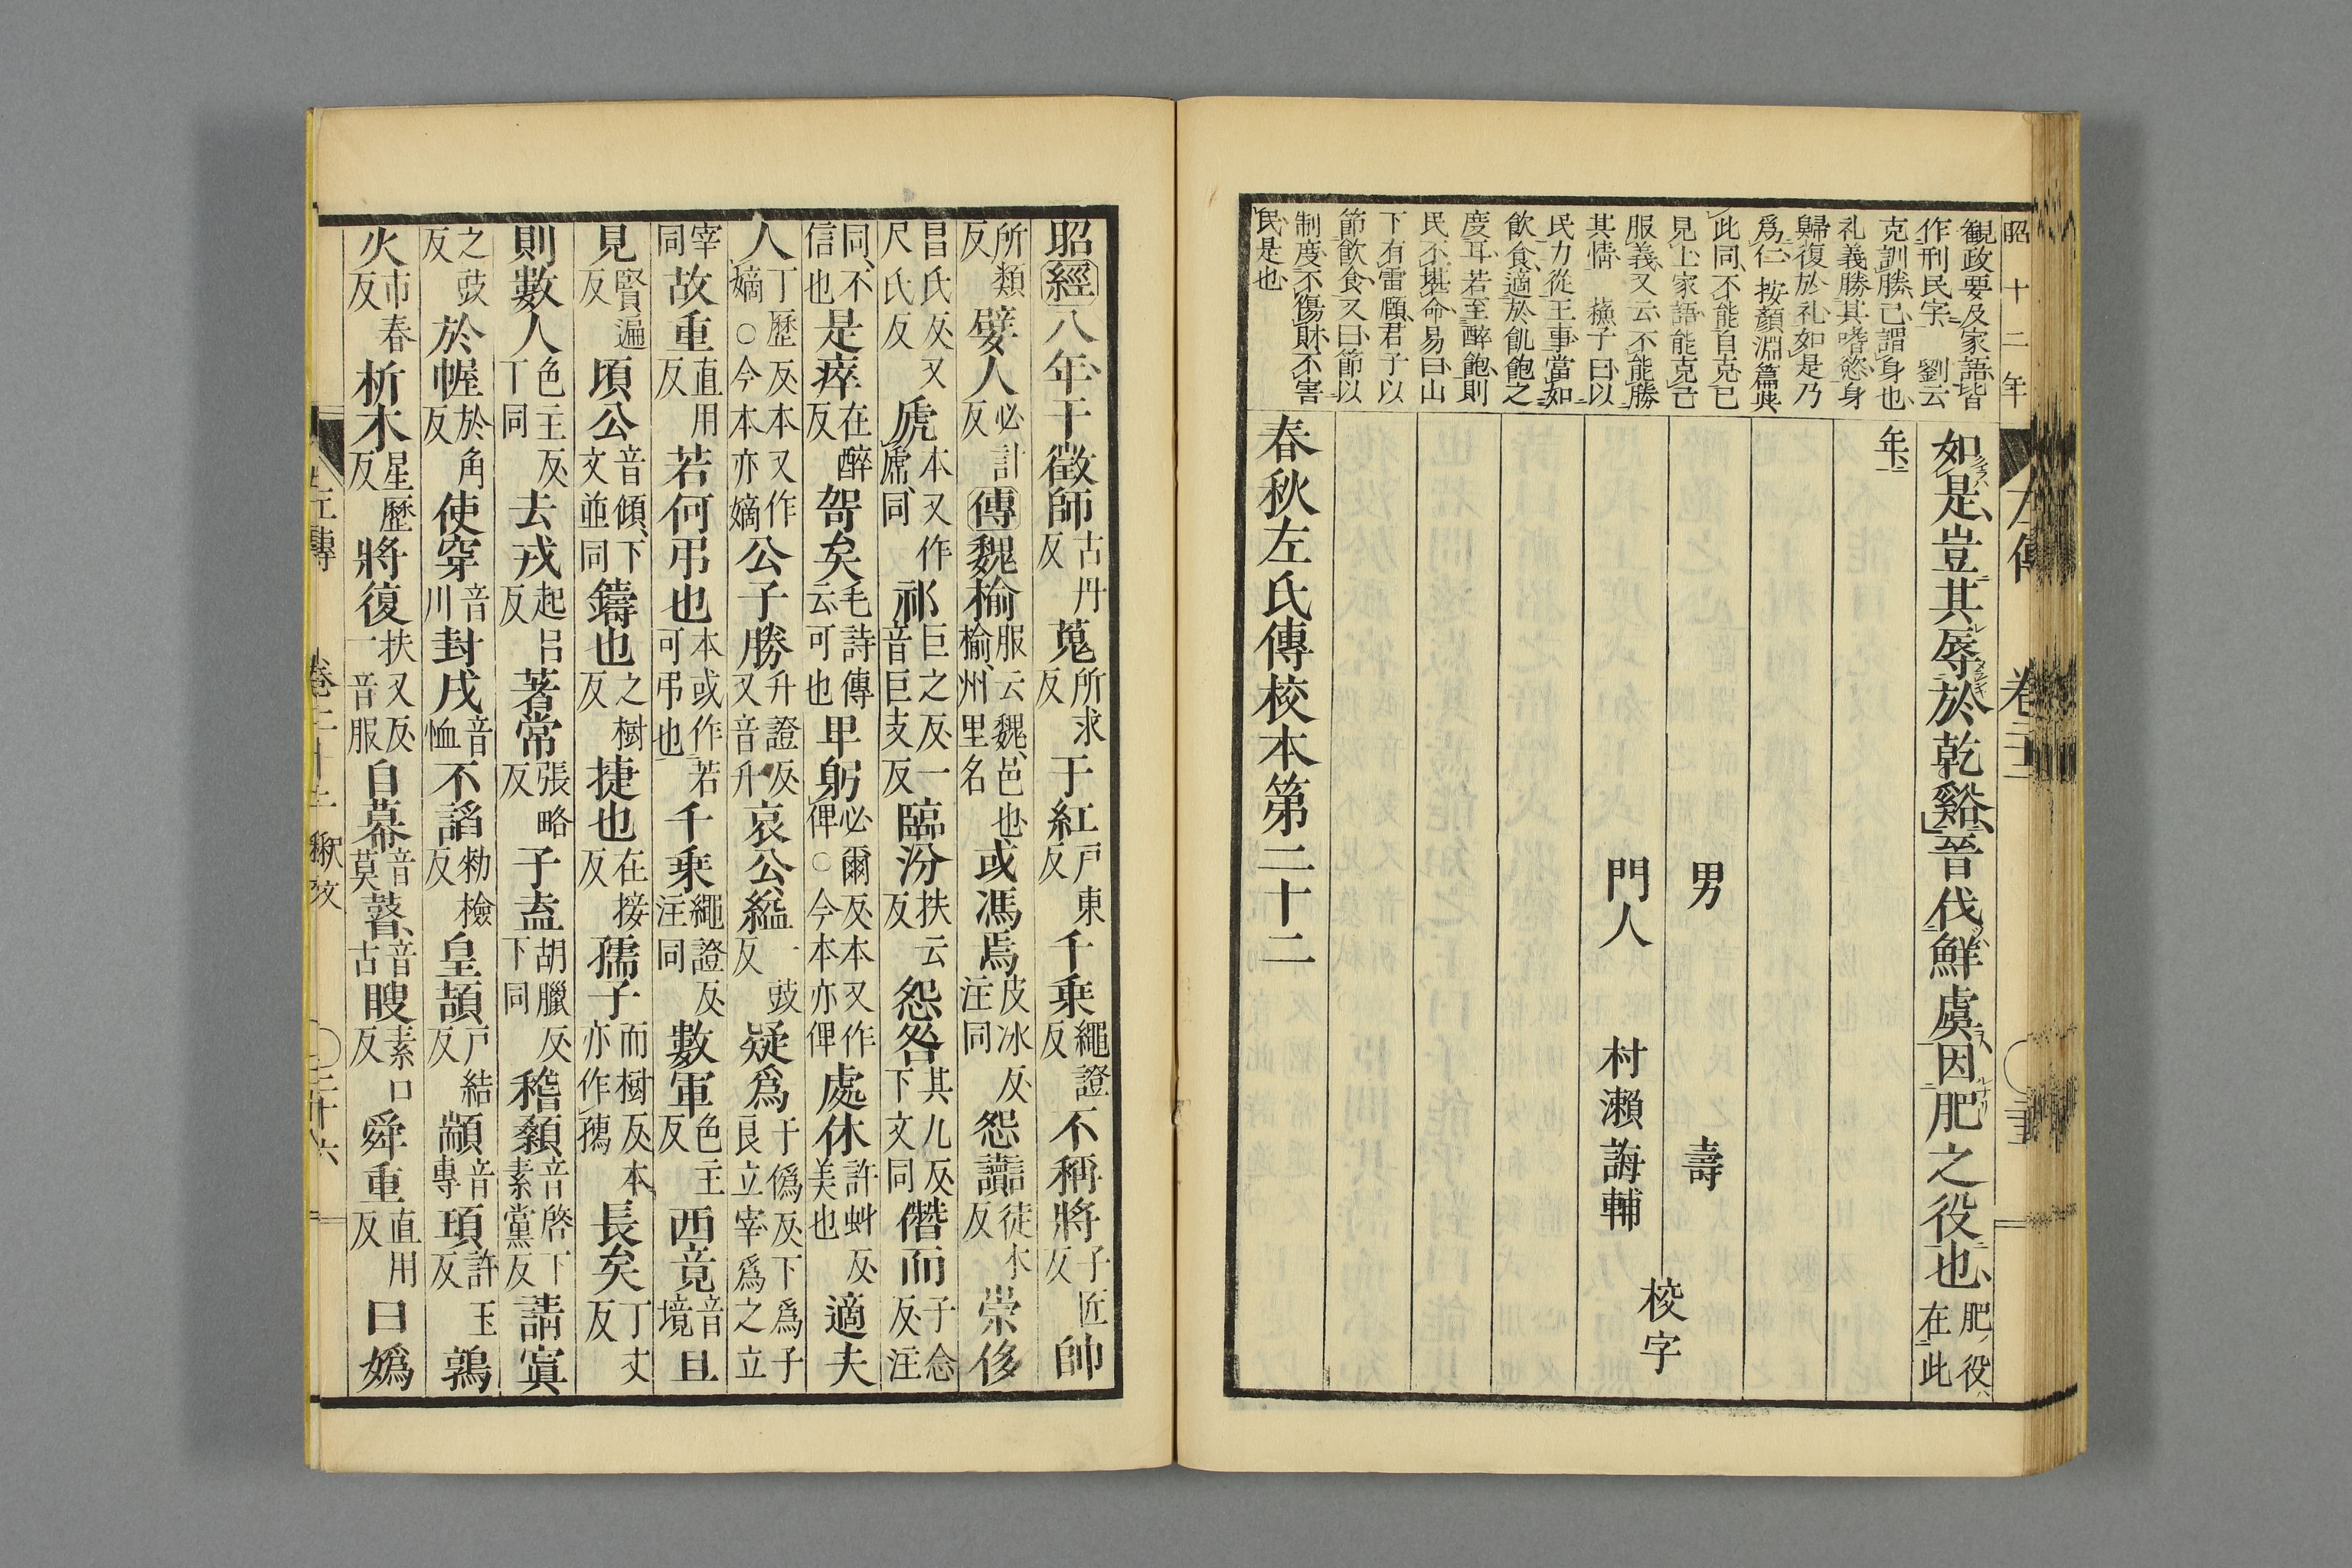 昭十二年
觀政要及家語皆
作刑民字 劉云
克訓勝己謂身也
礼義勝其嗜慾身
歸復於礼如是乃
爲仁 按顏淵篇與
此同不能自克已
見上家語能克己
服義又云不能勝
其情 蘓子曰以
民力從王事當如
飲食適於飢飽之
度耳若至醉飽則
民不堪命易曰山
下有雷頤君子以
節飲食又曰節以
制度不傷財不害
民是也
如是豈其辱於乾谿晉伐鮮虞因肥之役也肥ノ役ハ在此
年
男 壽
門人 村瀨誨輔
校字
春秋左氏傳校本第二十二
昭經八年干徵師古丹反蒐所求反于紅戸東反千乗繩證反不稱將子匠反帥
所類反嬖人必計反傳魏榆服云魏邑也榆州里名或馮焉皮冰反注同怨讟徒木反崇侈
昌氏反又尺氏反虒本又作虎同祁巨之反一音巨支反臨汾扶云反怨咎其九反下文同僭而子念反注
同不信也是瘁在醉反哿矣毛詩傳云可也卑躬必爾反本又作俾○今本亦俾處休許虯反美也適夫
人丁歷反本又作嫡○今本亦嫡公子勝升證反又音升哀公縊一豉反疑爲于僞反下爲子良立宰爲之立
宰同故重直用反若何弔也本或作若可弔也千乗繩證反注同數軍色主反西竟音境且
見賢遍反頃公音傾下文並同鑄也之樹反捷也在接反孺子而樹反本亦作𡦗長矣丁丈反
則數人色主反丁同去戎起呂反著常張略反子盍胡臘反下同稽顙音啓下素黨反請寘
之豉反於幄於角反使穿音川封戌音恤不諂勑檢反皇頡戸結反顓音專頊許玉反鶉
火市春反析木星歷反將復扶又反一音服自幕音莫瞽音古瞍素口反舜重直用反曰嬀